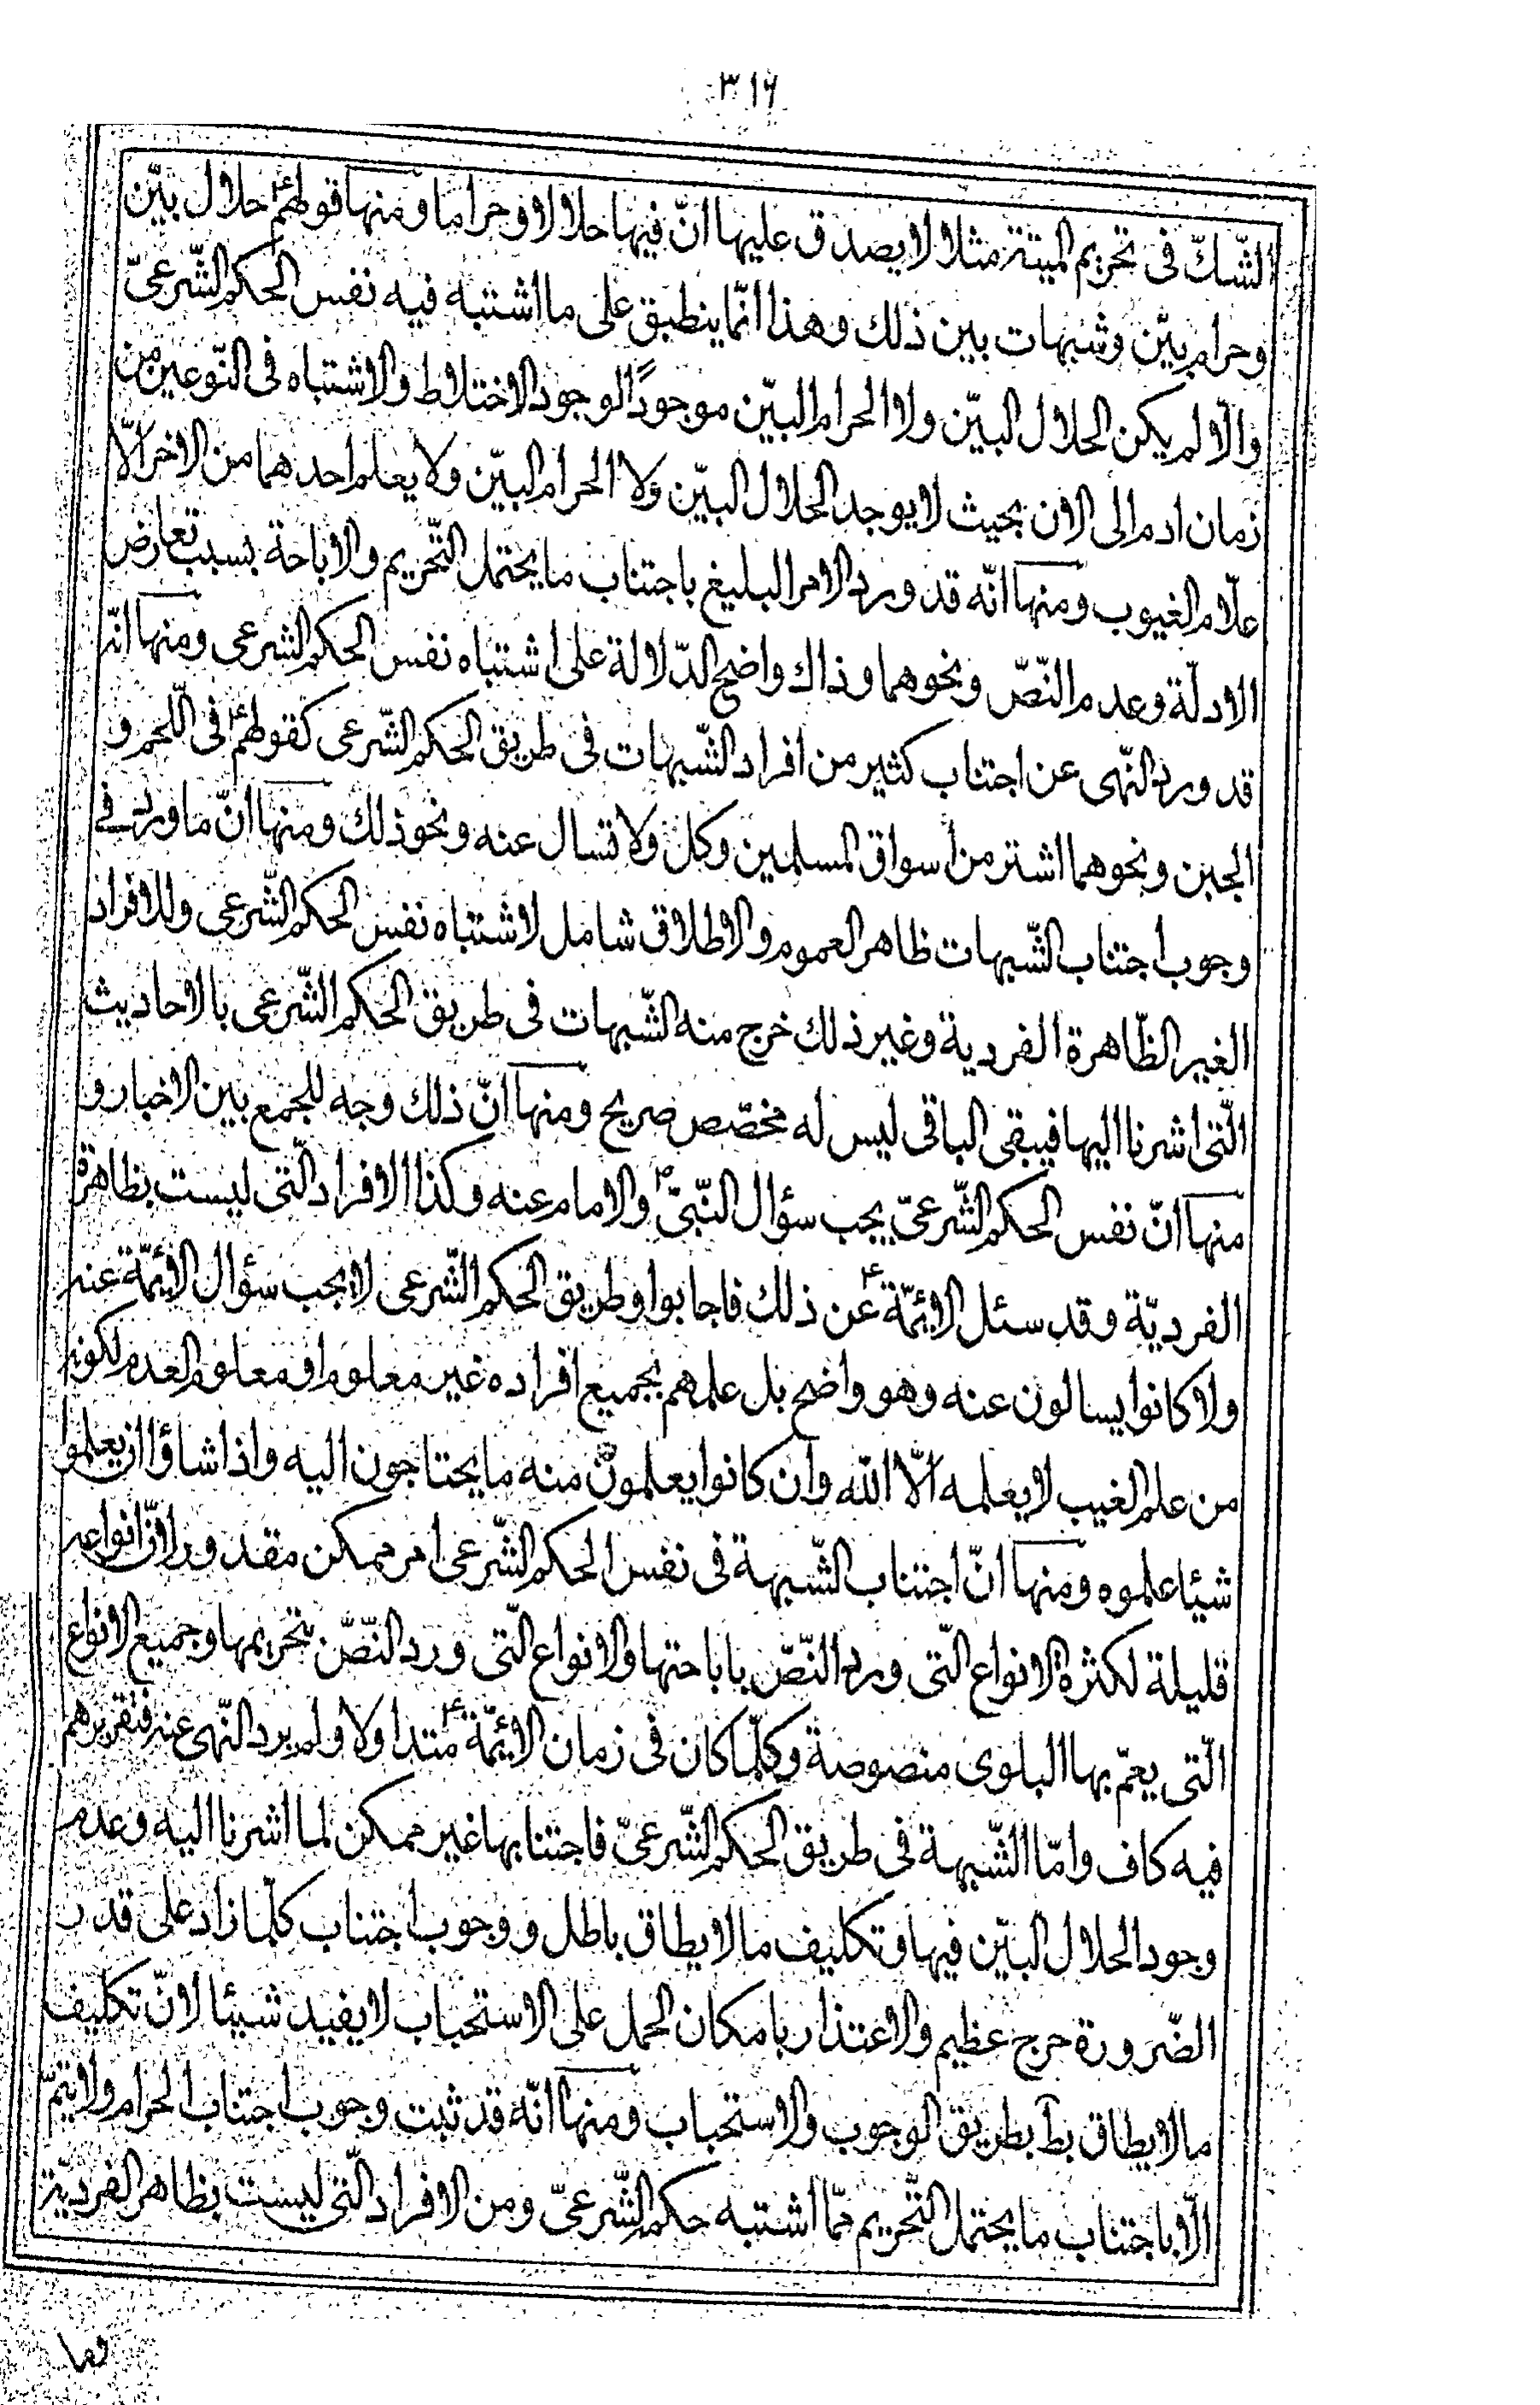 ٣١٦
الشّكّ فى تحريم الميتة مثلا لا يصدق عليها انّ فيها حلالا و حراما و منها قولهم ع حلال بيّن
و حرام بيّن و شبهات بين ذلك و هذا انّما ينطبق على ما اشتبه فيه نفس الحكم الشّرعىّ
و الّا لم يكن الحلال البيّن و لا الحرام البيّن موجودًا لوجود الاختلاط و الاشتباه فى النّوعين من
زمان ادم الى الان بحيث لا يوجد الحلال البيّن و لا الحرام البيّن و لا يعلم احدهما من الاخر الّا
علّام الغيوب و منها انّه قد ورد الامر البليغ باجتناب ما يحتمل التّحريم و الاباحة بسبب تعارض
الادلّة و عدم النّصّ و نحوهما و ذاك واضح الدّلالة على اشتباه نفس الحكم الشرعى و منها انّه
قد ورد النّهى عن اجتناب كثير من افراد الشّبهات فى طريق الحكم الشّرعى كقولهم ع فى اللّحم و
الجبن و نحوهما اشتر من اسواق المسلمين و كل و لا تسال عنه و نحو ذلك و منها انّ ما ورد فى
وجوب اجتناب الشّبهات ظاهر العموم و الاطلاق شامل لاشتباه نفس الحكم الشّرعى و للافراد
الغير الظّاهرة الفردية و غير ذلك خرج منه الشّبهات فى طريق الحكم الشّرعى بالاحاديث
الّتى اشرنا اليها فيبقى الباقى ليس له مخصّص صريح و منها انّ ذلك وجه للجمع بين الاخبار و
منها انّ نفس الحكم الشّرعىّ يجب سؤال النّبىّ ص و الامام عنه و كذا الافراد الّتى ليست بظاهرة
الفرديّة و قد سئل الائمّة ع عن ذلك فاجابوا و طريق الحكم الشّرعى لا يجب سؤال الائمّة عنه
و لا كانوا يسالون عنه و هو واضح بل علمهم بجميع افراده غير معلوم او معلوم العدم لكونه
من علم الغيب لا يعلمه الّا الله و ان كانوا يعلمون منه ما يحتاجون اليه و اذا شاؤا ان يعلموا
شيئا علموه و منها انّ اجتناب الشّبهة فى نفس الحكم الشّرعى امر ممكن مقدور لانّ انواعه
قليلة لكثرة الانواع الّتى ورد النّصّ باباحتها و الانواع الّتى ورد النّصّ بتحريمها و جميع الانواع
الّتى يعمّ بها البلوى منصوصة و كلّما كان فى زمان الائمّة ع متداولا و لم يرد النّهى عنه فتقريرهم
فيه كاف و امّا الشّبهة فى طريق الحكم الشّرعىّ فاجتنابها غير ممكن لما اشرنا اليه و عدم
وجود الحلال البيّن فيها و تكليف ما لا يطاق باطل و وجوب اجتناب كلّما زاد على قدر
الضّرورة حرج عظيم و الاعتذار بامكان الحمل على الاستحباب لا يفيد شيئا لانّ تكليف
ما لا يطاق بط بطريق الوجوب و الاستحباب و منها انّه قد ثبت وجوب اجتناب الحرام و لا يتمّ
الّا باجتناب ما يحتمل التّحريم ممّا اشتبه حكم الشّرعىّ و من الافراد الّتى ليست بظاهر الفرديّة